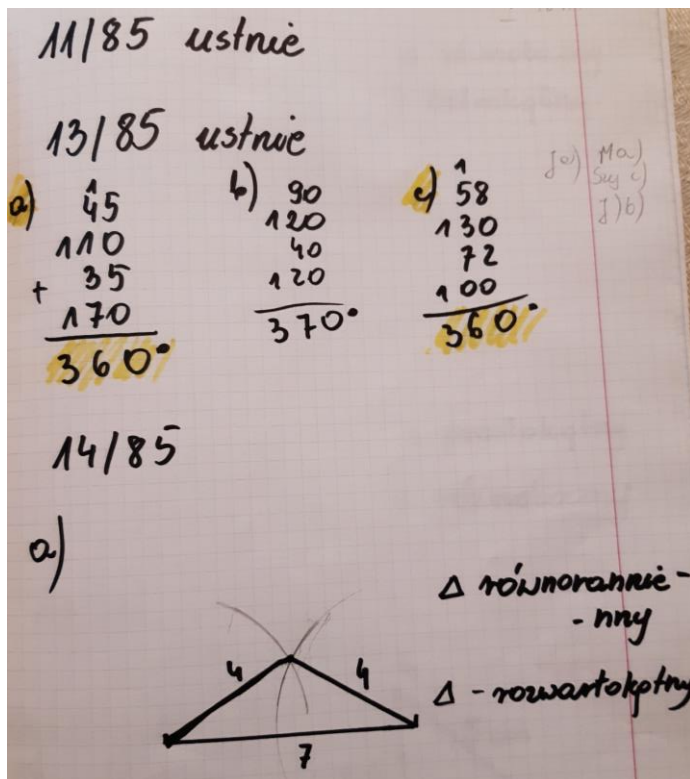 11/85 ustnie
13/85 ustnie
a)
1
45
110
+ 35
170
360°
b) 90
120
40
120
370°
c)
1
58
130
72
100
360°
Ma)
J)b)
14/85
a)
Δ równorannie-
-nny
Δ - rozwartokątny
4
4
7